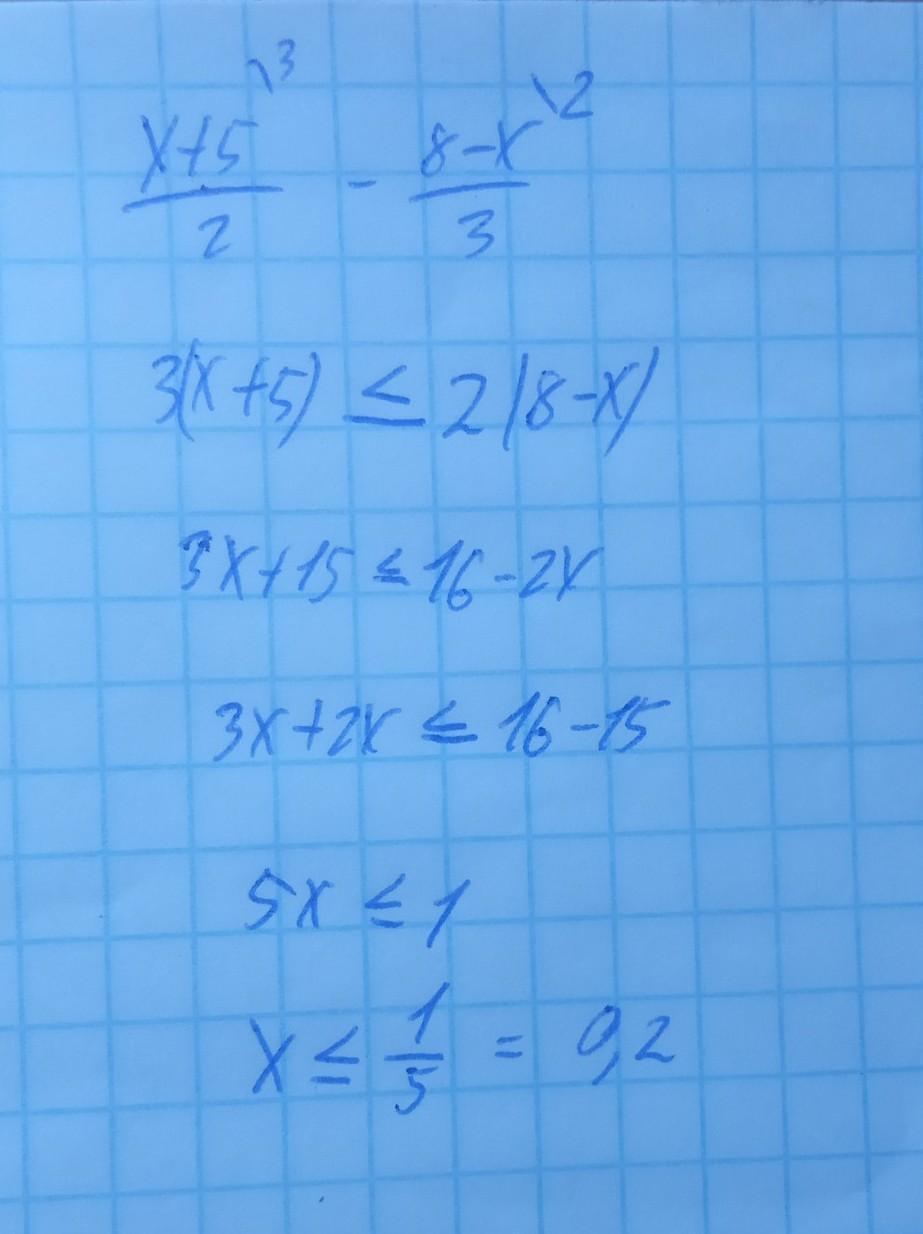 x+5\3 / 2 - 8-x\2 / 3
3(x+5) ≤ 2(8-x)
3x+15 ≤ 16-2x
3x+2x ≤ 16-15
5x ≤ 1
x ≤ 1/5 = 0,2